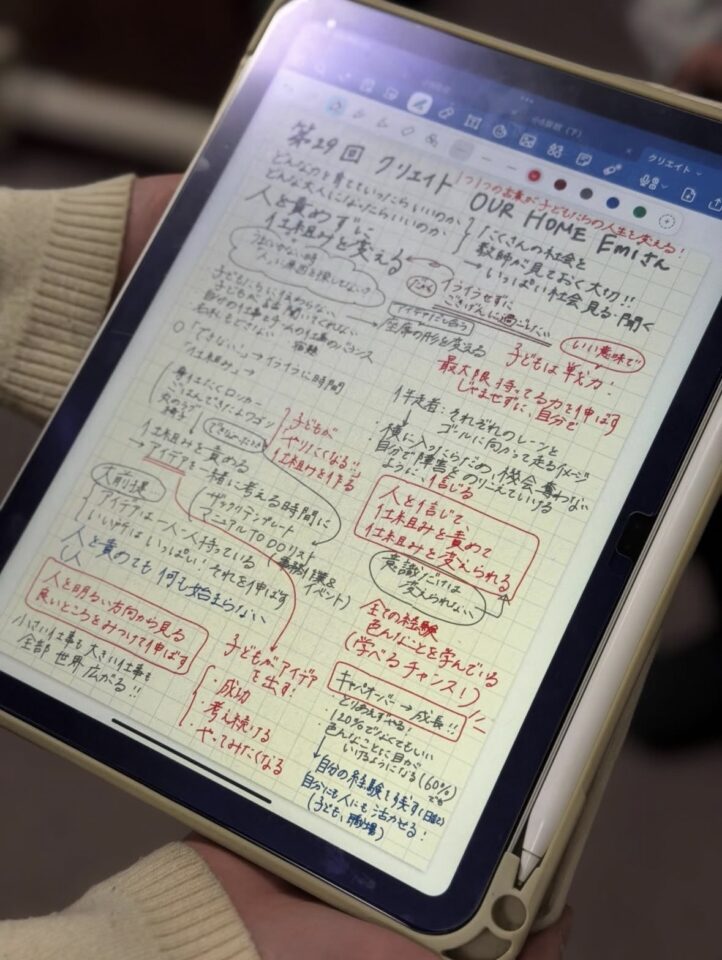 クリエイト
第29回 クリエイト OUR HOME Emiさん
1つ1つの言葉が子どもたちの人生を変える!
どんな力を育てていったらいいのか
どんな大人になったらいいのか
たくさんの社会を
教師が見ておく大切!!
→いっぱい社会見る・聞く
人を責めずに
仕組みを変える
うまくいかない時
「人」に原因を探してない?
イライラせずに
ごきげんに過ごしたい
子どもたちに伝わらない
子どもが話を聞いてくれない
自分の仕事とチームの仕事のバランス
宿題
→座席の形を変える
○「できない」→イライラに時間
「仕組み」→
子どもは単力!
いい意味で
最大限持ってる力を伸ばす
じゃませずに、自分で
伴走者:それぞれのレーンと
ゴールに向かって走るイメージ
・横に入りこらだめ 機会奪わない
自分で障害をのりこえていける
ように信じる
身仕たくロッカー
ごはんできたよワゴン
子どもが
やりにくくなる!!
仕組みを作る
仕組みを責める
→アイデアを一緒に考える時間に
ザックリテンプレート
マニュアルTO DOリスト
イベント)
大前提
アイデアは一人一人持っている
いい所はいっぱい!それを伸ばす
人を責めても何も始まらない
人を信じて、
仕組みを責めて
仕組みを変えられる
意識だけは
変えられない
人を明るい方向から見る
良いところをみつけて伸ばす
小さい仕事も大きい仕事も
全部 世界広がる!!
子どもがアイデア
を出す!
・成功
・考え続ける
・やってみたくなる
全ての経験
色んなことを学んでいる
(学べるチャンス!)
キャパオーバー→成長!!
とりあえずやる!
・120%でなくてもいい
色んなことに目が
いけるようになる(60%)でも
自分の経験を残す(日記)
自分にも人にも活かせる!
(子ども、職場)